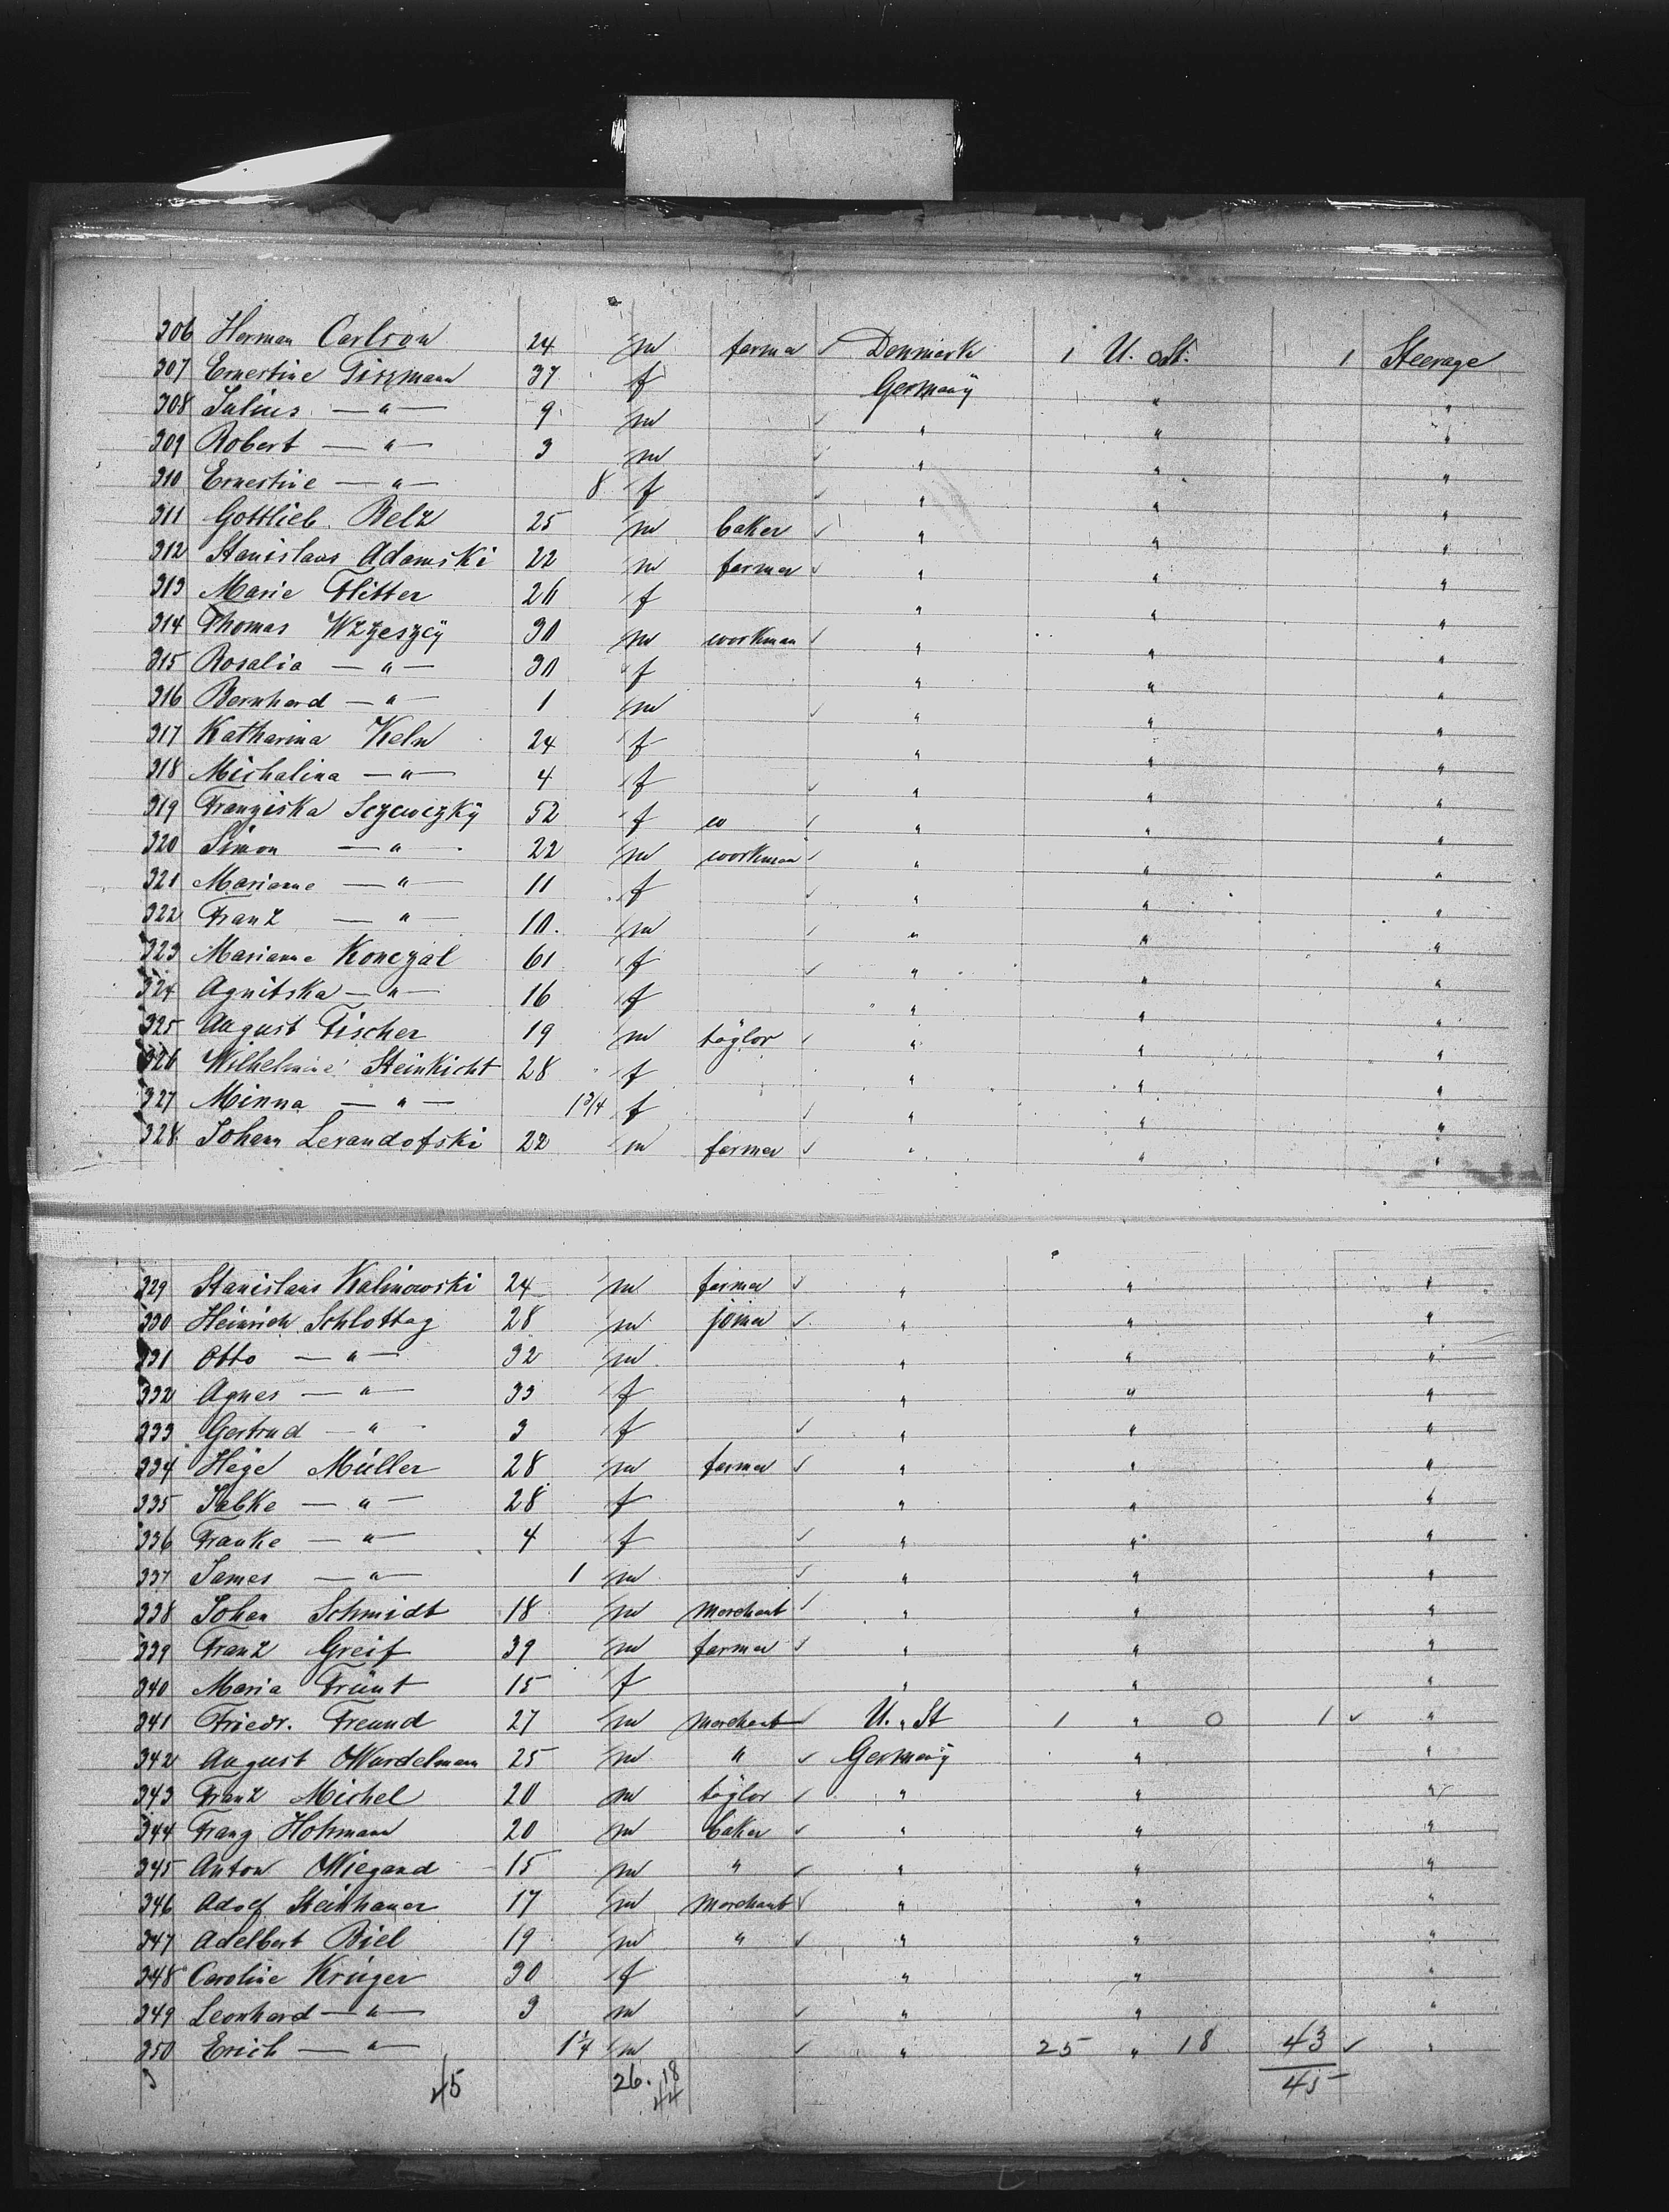 306 Herman Carlson 24 m farmer ✓ Denmark 1 U. St. 1 Steerage
307 Ernestine Tiszmann 37 f Germany " "
308 Julius — " — 9 m ✓ " " "
309 Robert — " — 3 m ✓ " " "
310 Ernestine — " — 8 f ✓ " " "
311 Gottlieb Belz 25 m baker ✓ " " "
312 Stanislaus Adamski 22 m farmer ✓ " " "
313 Marie Flitter 26 f " " "
314 Thomas Wzzeszcÿ 30 m workman ✓ " " "
315 Rosalia — " — 30 f " " "
316 Bernhard — " — 1 m ✓ " " "
317 Katharina Keln 24 f " " "
318 Michalina — " — 4 f ✓ " " "
319 Franziska Sczewczkÿ 52 f w ✓ " " "
320 Simon — " — 22 m workman ✓ " " "
321 Marianne — " — 11 f ✓ " " "
322 Franz — " — 10 m ✓ " " "
323 Marianne Konczal 61 f ✓ " " "
324 Agnitska — " — 16 f " " "
325 August Fischer 19 m taÿlor ✓ " " "
326 Wilhelmine Steinkicht 28 f " " "
327 Minna — " — 1 3/4 f ✓ " " "
328 Johann Levandofski 22 m farmer ✓ " " "
329 Stanislaus Kalinowski 24 m farmer ✓ " " "
330 Heinrich Schlottag 28 m joiner ✓ " " "
331 Otto — " — 32 m " " "
332 Agnes — " — 33 f " " "
333 Gertrud — " 3 f ✓ " " "
334 Hege Müller 28 m farmer ✓ " " "
335 Tabke — " — 28 f " " "
336 Frauke — " — 4 f ✓ " " "
337 James — " — 1 m ✓ " " "
338 Johan Schmidt 18 m merchant ✓ " " "
339 Franz Greif 39 m farmer ✓ " " "
340 Maria Trünt 15 f " " "
341 Friedr. Freund 27 m merchant ✓ U. St 1 " 0 1 ✓ "
342 August Wardelmann 25 m " ✓ Germanÿ " "
343 Franz Michel 20 m taÿlor ✓ " " "
344 Franz Hohmann 20 m baker ✓ " " "
345 Anton Wiegand 15 m " ✓ " " "
346 Adolf Steinhauer 17 m merchant ✓ " " "
347 Adelbert Biel 19 m " ✓ " " "
348 Caroline Krüger 30 f " " "
349 Leonhard — " — 3 m ✓ " " "
350 Erich — " — 1 1/4 m ✓ " 25 " 18 43 ✓ "
45 26. 18 45
44